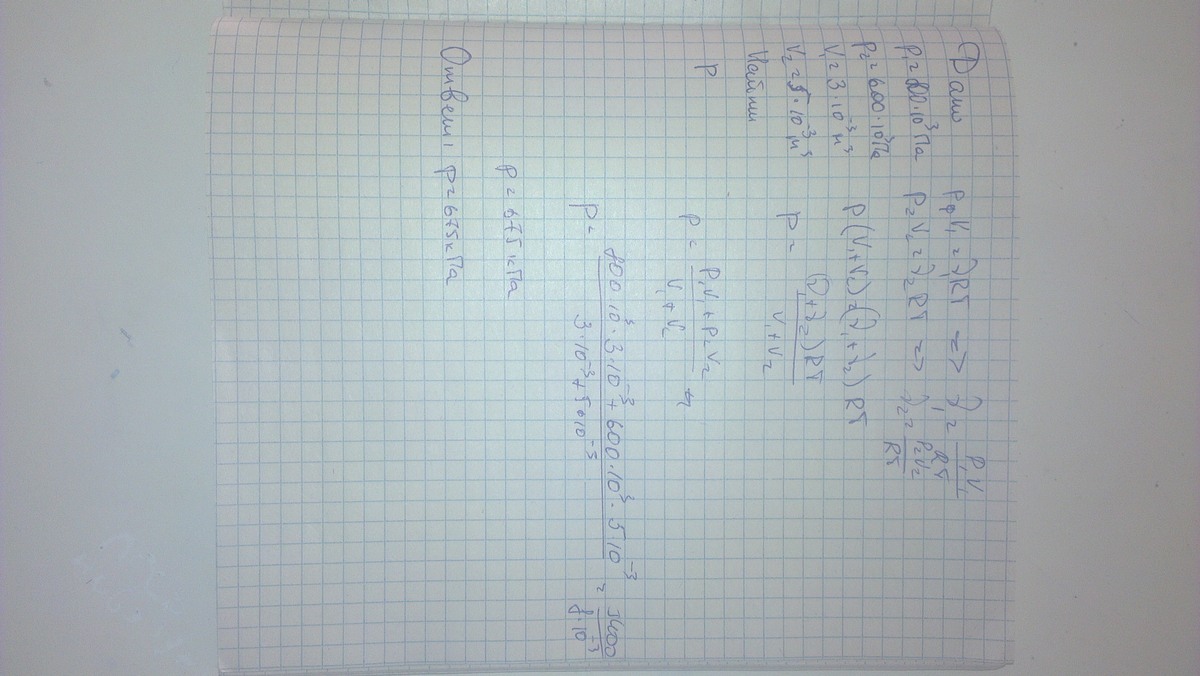 Дано
P₁ = 800·10³Па
P₂ = 600·10³Па
V₁ = 3·10⁻³ м³
V₂ = 5·10⁻³ м³
Найти
P
P₁V₁ = ν₁RT => ν₁ = P₁V₁/RT
P₂V₂ = ν₂RT => ν₂ = P₂V₂/RT
P(V₁+V₂) = (ν₁+ν₂)RT
P = (ν₁+ν₂)RT/V₁+V₂
P = P₁V₁+P₂V₂/V₁+V₂
P = 800·10³·3·10⁻³+600·10³·5·10⁻³/3·10⁻³+5·10⁻³ = 5400/8·10⁻³
P = 675кПа
Ответ: P = 675кПа